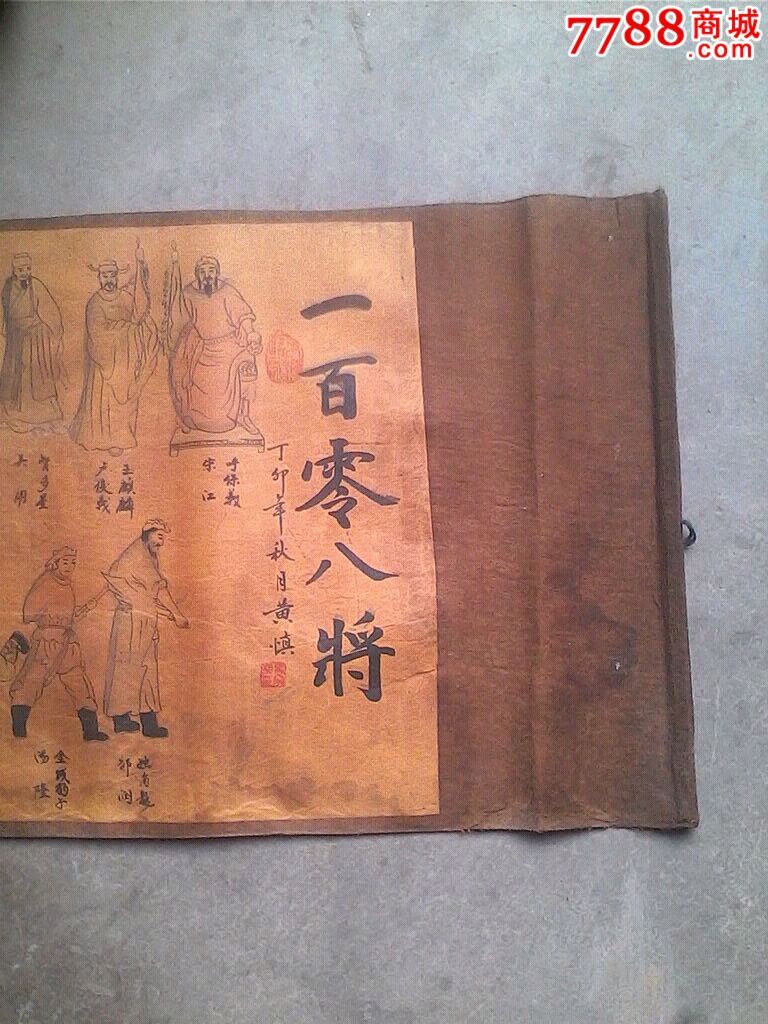 7788商城
.com
一百零八将
丁卯年秋月黄慎
呼保義
宋江
玉麒麟
卢俊義
智多星
吴用
独角龍
邹润
金钱豹子
汤隆